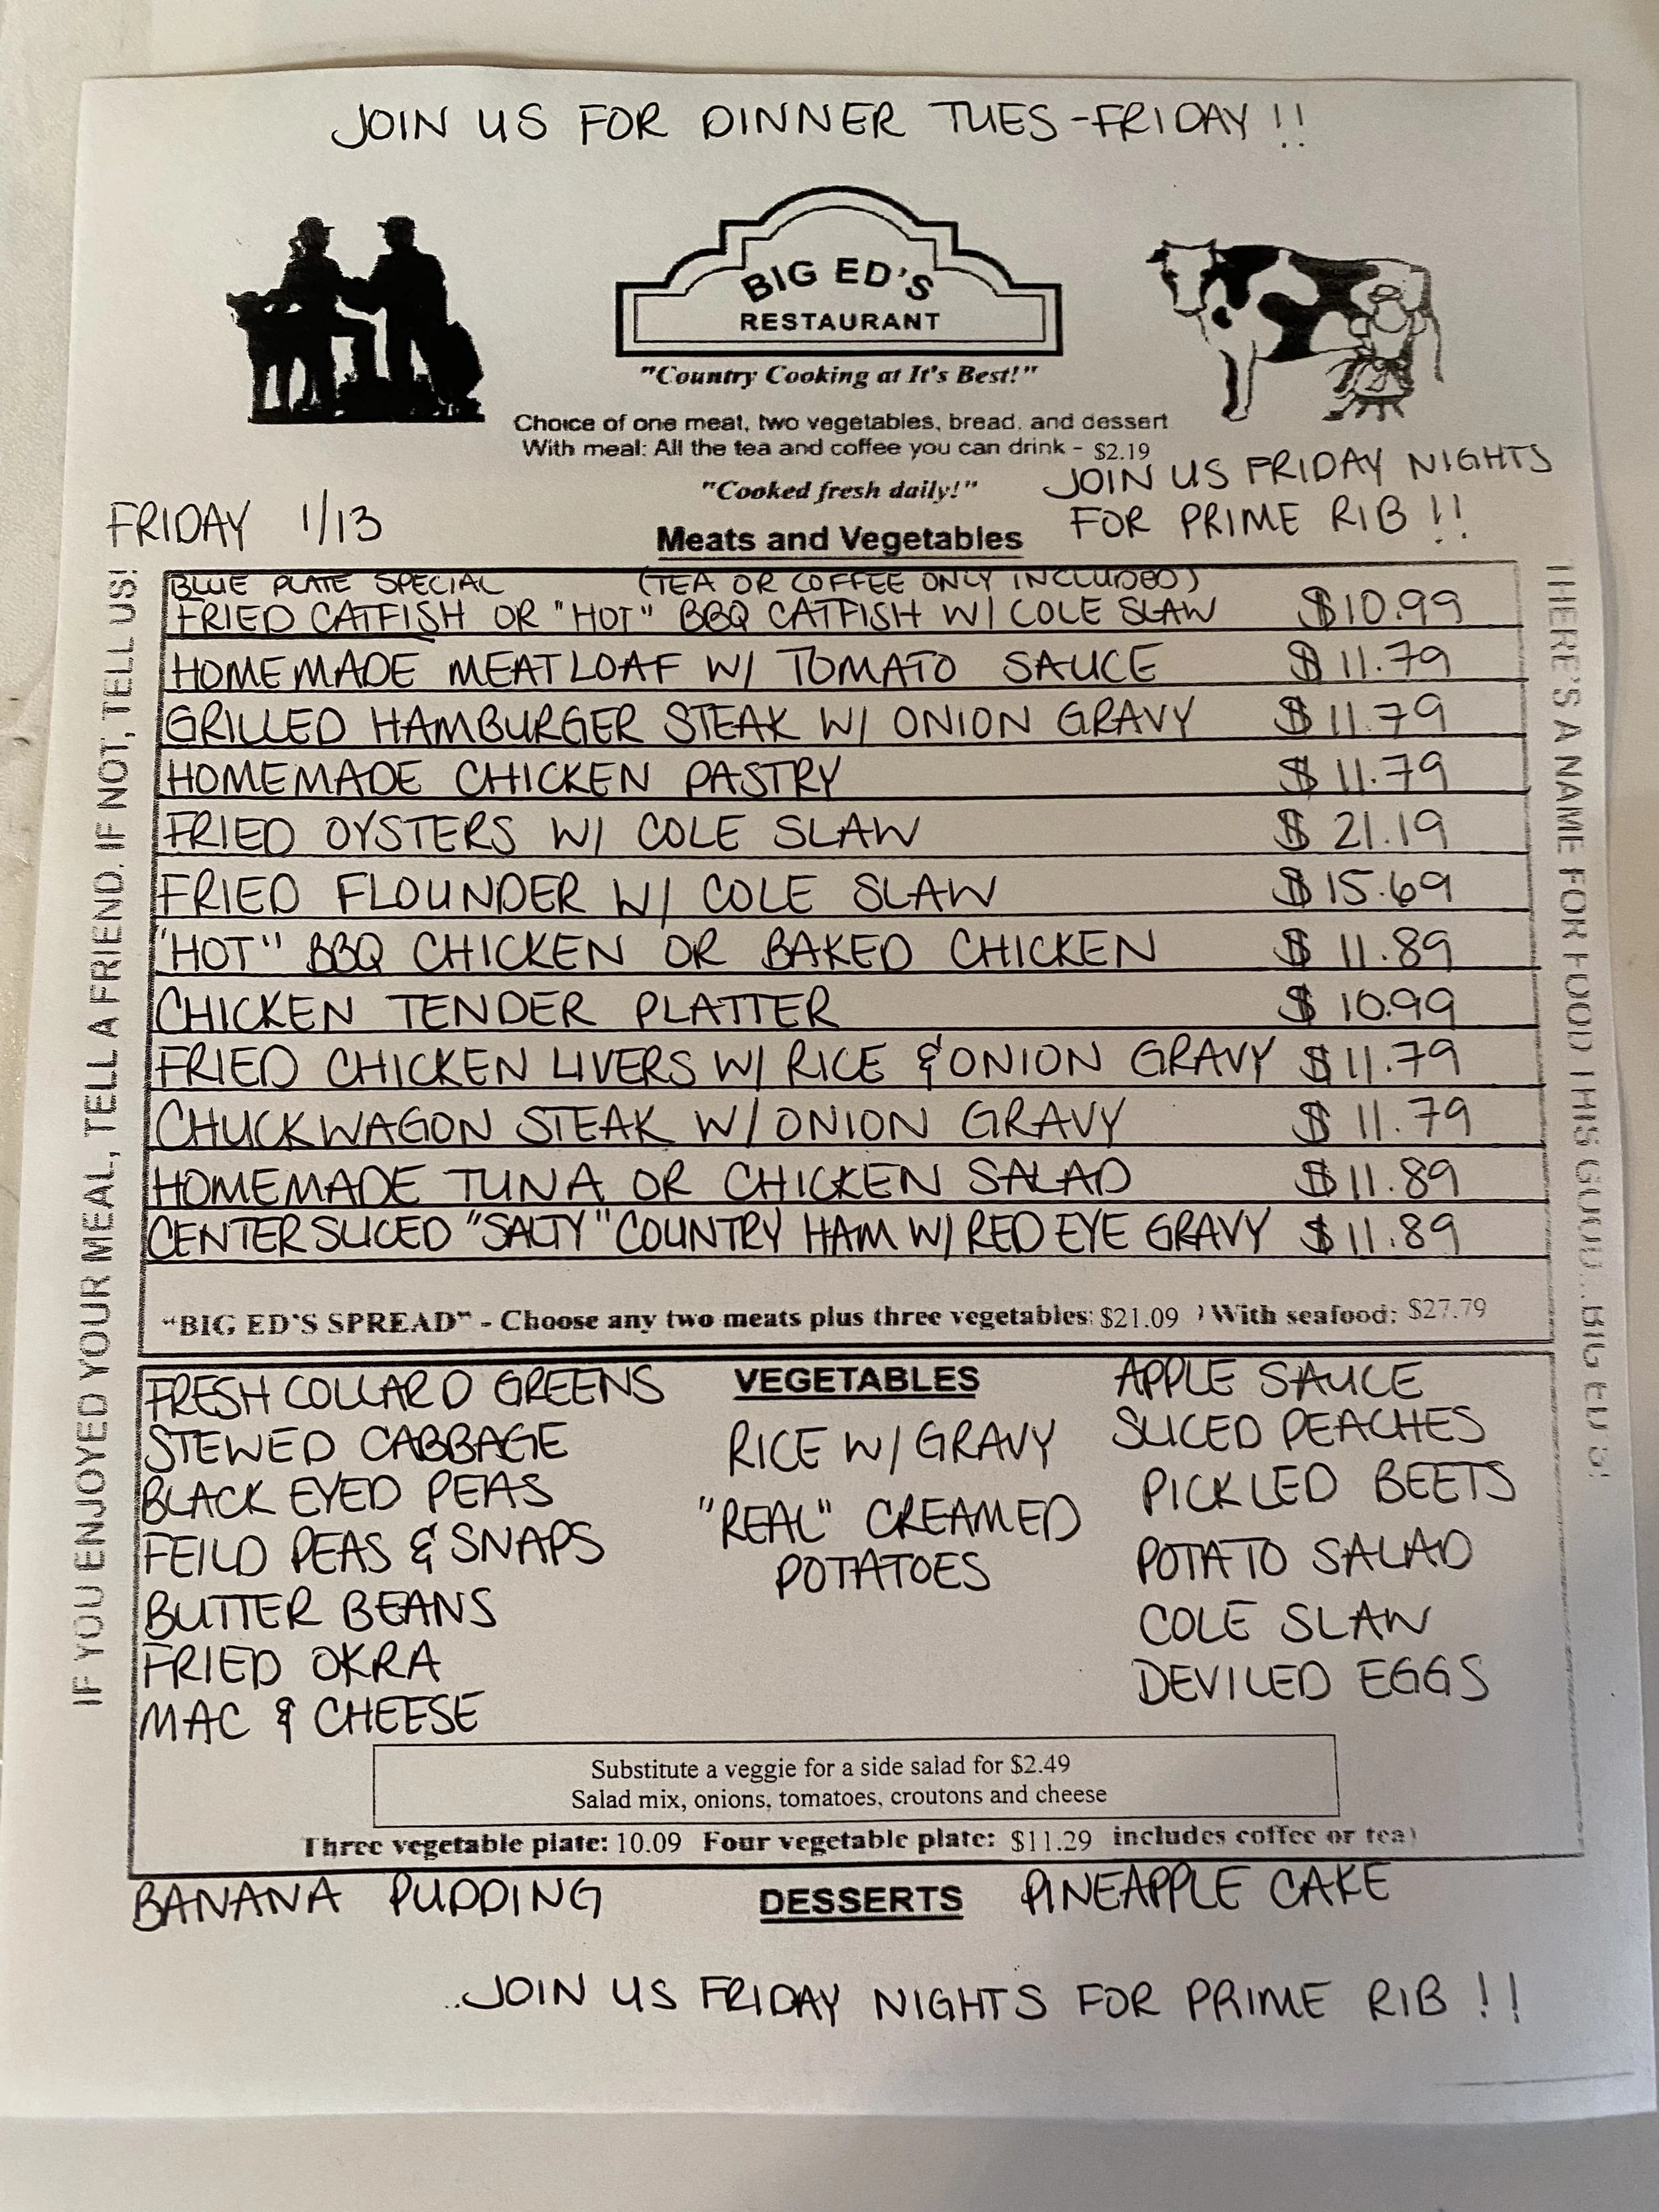 JOIN US FOR DINNER TUES-FRIDAY!!
BIG ED'S
RESTAURANT
"Country Cooking at It's Best!"
Choice of one meat, two vegetables, bread, and dessert
With meal: All the tea and coffee you can drink - $2.19
"Cooked fresh daily!"
JOIN US FRIDAY NIGHTS
FOR PRIME RIB !!
FRIDAY 1/13
Meats and Vegetables
BLUE PLATE SPECIAL (TEA OR COFFEE ONLY INCLUDED)
FRIED CATFISH OR "HOT" BBQ CATFISH W/ COLE SLAW $10.99
HOMEMADE MEATLOAF W/ TOMATO SAUCE $11.79
GRILLED HAMBURGER STEAK W/ ONION GRAVY $11.79
HOMEMADE CHICKEN PASTRY $11.79
FRIED OYSTERS W/ COLE SLAW $21.19
FRIED FLOUNDER W/ COLE SLAW $15.69
"HOT" BBQ CHICKEN OR BAKED CHICKEN $11.89
CHICKEN TENDER PLATTER $10.99
FRIED CHICKEN LIVERS W/ RICE & ONION GRAVY $11.79
CHUCKWAGON STEAK W/ ONION GRAVY $11.79
HOMEMADE TUNA OR CHICKEN SALAD $11.89
CENTER SLICED "SALTY" COUNTRY HAM W/ RED EYE GRAVY $11.89
"BIG ED'S SPREAD" - Choose any two meats plus three vegetables: $21.09 ) With seafood: $27.79
VEGETABLES
FRESH COLLARD GREENS
STEWED CABBAGE
BLACK EYED PEAS
FEILD PEAS & SNAPS
BUTTER BEANS
FRIED OKRA
MAC & CHEESE
RICE W/ GRAVY
"REAL" CREAMED
POTATOES
APPLE SAUCE
SLICED PEACHES
PICKLED BEETS
POTATO SALAD
COLE SLAW
DEVILED EGGS
Substitute a veggie for a side salad for $2.49
Salad mix, onions, tomatoes, croutons and cheese
Three vegetable plate: 10.09 Four vegetable plate: $11.29 includes coffee or tea)
DESSERTS
BANANA PUDDING
PINEAPPLE CAKE
..JOIN US FRIDAY NIGHTS FOR PRIME RIB !!
IF YOU ENJOYED YOUR MEAL, TELL A FRIEND. IF NOT, TELL US!
THERE'S A NAME FOR FOOD THIS GOOD...BIG ED'S!